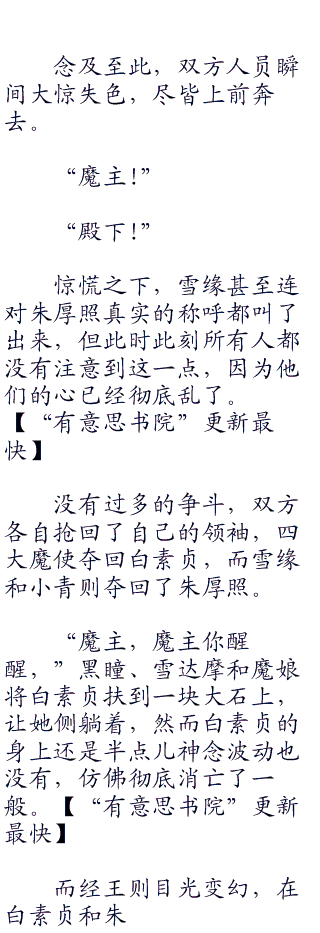 念及至此，双方人员瞬
间大惊失色，尽皆上前奔
去。
“魔主!”
“殿下!”
惊慌之下，雪缘甚至连
对朱厚照真实的称呼都叫了
出来，但此时此刻所有人都
没有注意到这一点，因为他
们的心已经彻底乱了。
【“有意思书院”更新最
快】
没有过多的争斗，双方
各自抢回了自己的领袖，四
大魔使夺回白素贞，而雪缘
和小青则夺回了朱厚照。
“魔主，魔主你醒
醒，”黑瞳、雪达摩和魔娘
将白素贞扶到一块大石上，
让她侧躺着，然而白素贞的
身上还是半点儿神念波动也
没有，仿佛彻底消亡了一
般。【“有意思书院”更新
最快】
而经王则目光变幻，在
白素贞和朱